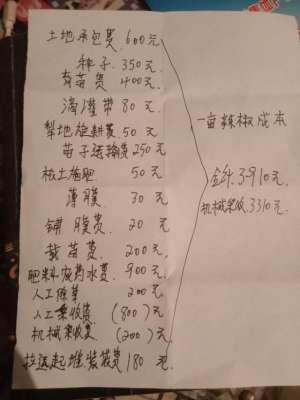 土地承包费 600元
种子 350元
育苗费 400元
滴灌带 80元
犁地旋耕费 50元
苗子运输费 250元
土施肥 50元
薄膜 30元
铺膜费 20元
栽苗费 200元
肥料农药水费 900元
人工除草 200元
人工采收费 (800)元
机械采收费 (200)元
拉运起堆装袋费 180元
一亩辣椒成本
合计:3910元
机械采收:3310元